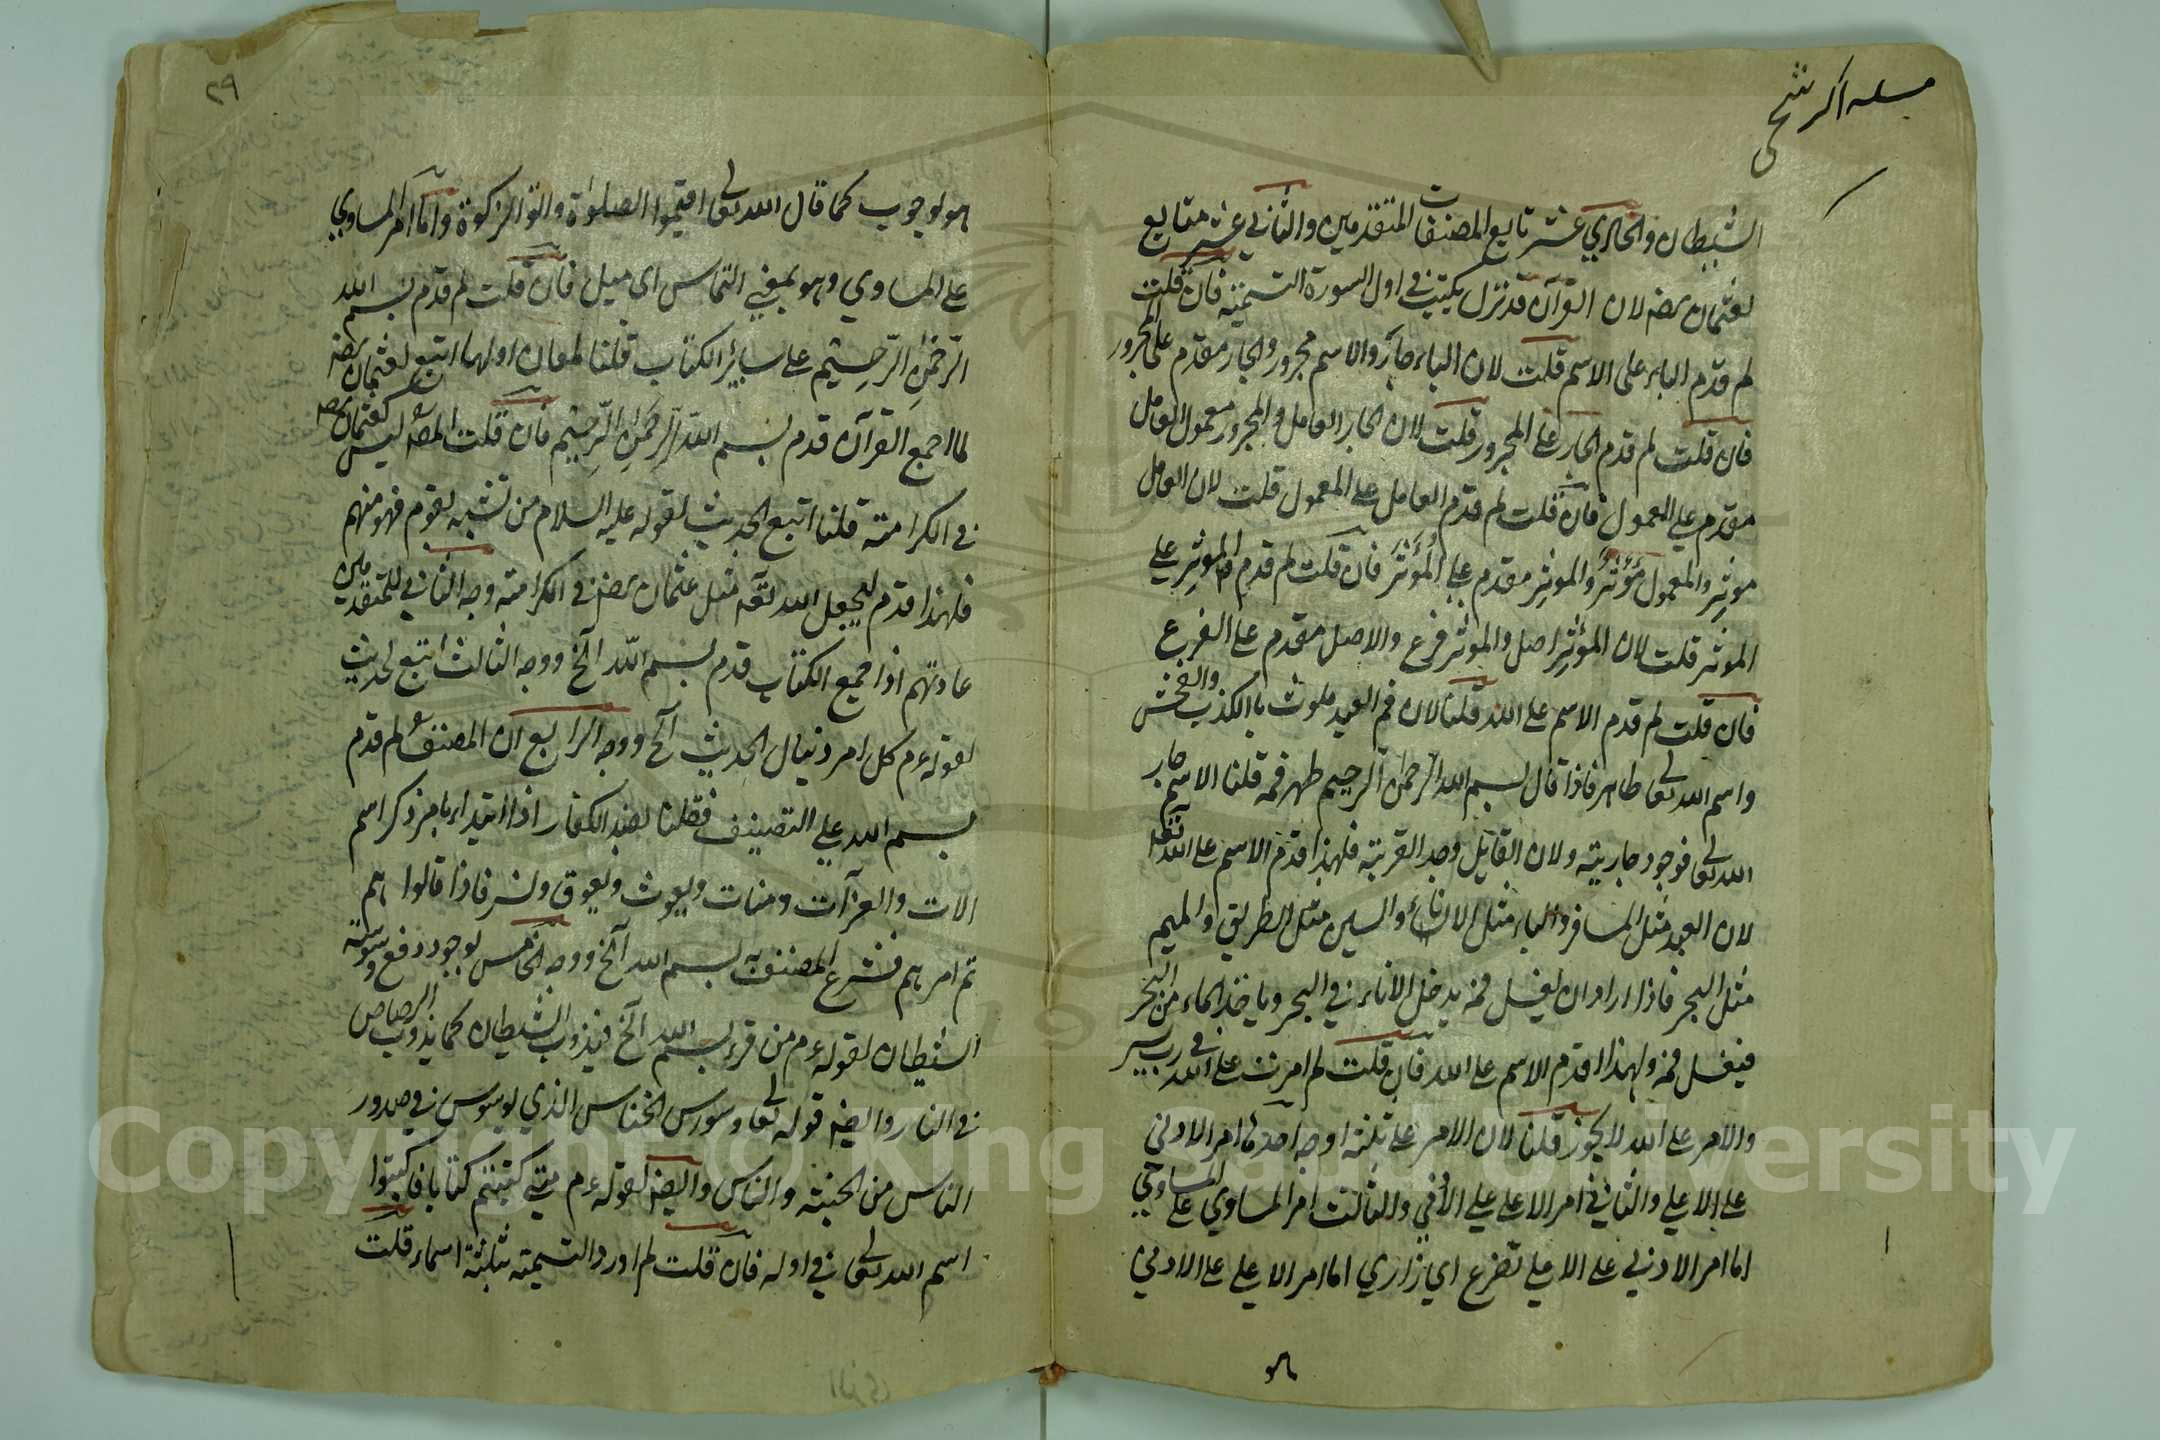 مسله اكر شخى
الشيطان والحادي عشر تابع المصنفات المتقدمين والثاني عشر متابع
لعثمان رضه لان القرآن قد نزل يكتب في اول السورة التسمية فان قلت
لم قدم الباء على الاسم قلت لان الباء جار والاسم مجرور والجار مقدم على المجرور
فان قلت لم قدم الجار على المجرور قلت لان الجار العامل والمجرور معمول العامل
مقدم على المعمول فان قلت لم قدم العامل على المعمول قلت لان العامل
موثر والمعمول مؤثر والموثر مقدم على المؤثر فان قلت لم قدم الموثر على
الموثر قلت لان المؤثر اصل والموثر فرع والاصل مقدم على الفرع
فان قلت لم قدم الاسم على الله قلنا لان فم العبد ملوث بالكذب والفحش
واسم الله تعالى طاهر فاذا قال بسم الله الرحمن الرحيم طهر فمه قلنا الاسم جار
الله تعالى فوجود جاريته ولان القايل وجد القربته فلهذا قدم الاسم على الله
لان العبد مثل المسافر والباء مثل الاناء والسين مثل الطريق والميم
مثل البحر فاذا اراد ان يغسل فمه يدخل الاناء في البحر وياخذ الماء من البحر
فيغسل فمه ولهذا قدم الاسم على الله فان قلت لم امرت على الله في رب يسر
والامر على الله لا يجوز قلنا لان الامر على ثلثة اوجه احدها امر الادنى
على الاعلى والثاني امر الاعلى على الادنى والثالث امر المساوي على المساوي
اما امر الادنى على الاعلى تضرع اي زاري اما امر الاعلى على الادنى
هو
٢٩
هو لوجوب كما قال الله تعالى اقيموا الصلوة واتوا الزكوة واما امر المساوي
على المساوي وهو بمعني التماس اي ميل فان قلت لم قدم بسم الله
الرحمن الرحيم على ساير الكتاب قلنا لمعان اولها اتبع لعثمان رضه
لما جمع القرآن قدم بسم الله الرحمن الرحيم فان قلت المصنف ليس كعثمان رضه
في الكرامته قلنا اتبع الحديث لقوله عليه السلام من تشبه بقوم فهو منهم
فلهذا قدم ليجعل الله تعه مثل عثمان رضه في الكرامته وجه الثاني للمتقدمين
عادتهم اذا جمع الكتاب قدم بسم الله آلخ ووجه الثالث اتبع لحديث
لقوله عم كل امر ذي بال الحديث آلخ ووجه الرابع ان المصنف لم قدم
بسم الله علي التصنيف فقلنا لضد الكفار اذا ابتداء بامر ذكر اسم
الات والعزآت ومنات ويغوث ويعوق ونسر فاذا قالوا هم
تم امر هم فشرع المصنف بسم الله آلخ ووجه الخامس لوجود دفع وسوسته
الشيطان لقوله عم من قرء بسم الله آلخ فيذوب الشيطان كما يذوب الرصاص
في النار وايضه قوله تعالى وسورس الخناس الذي يوسوس في صدور
الناس من الجنته والناس وايضه لقوله عم متى كتبتم كتابا فاكتبوا
اسم الله تعالى في اوله فان قلت لم اورد التسميته بثلثة اسماء قلت
Copyright © King Saud University